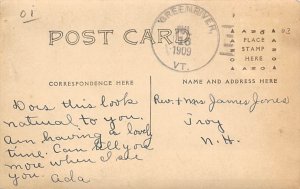 01
GREEN RIVER,
1909
VT.
POST CARD
PLACE
STAMP
HERE
CORRESPONDENCE HERE
NAME AND ADDRESS HERE
Does this look
natural to you.
Am having a lovely
time. Can tell you
more when I see
you. Ada
Rev. & Mrs James Jones
Troy
N.H.